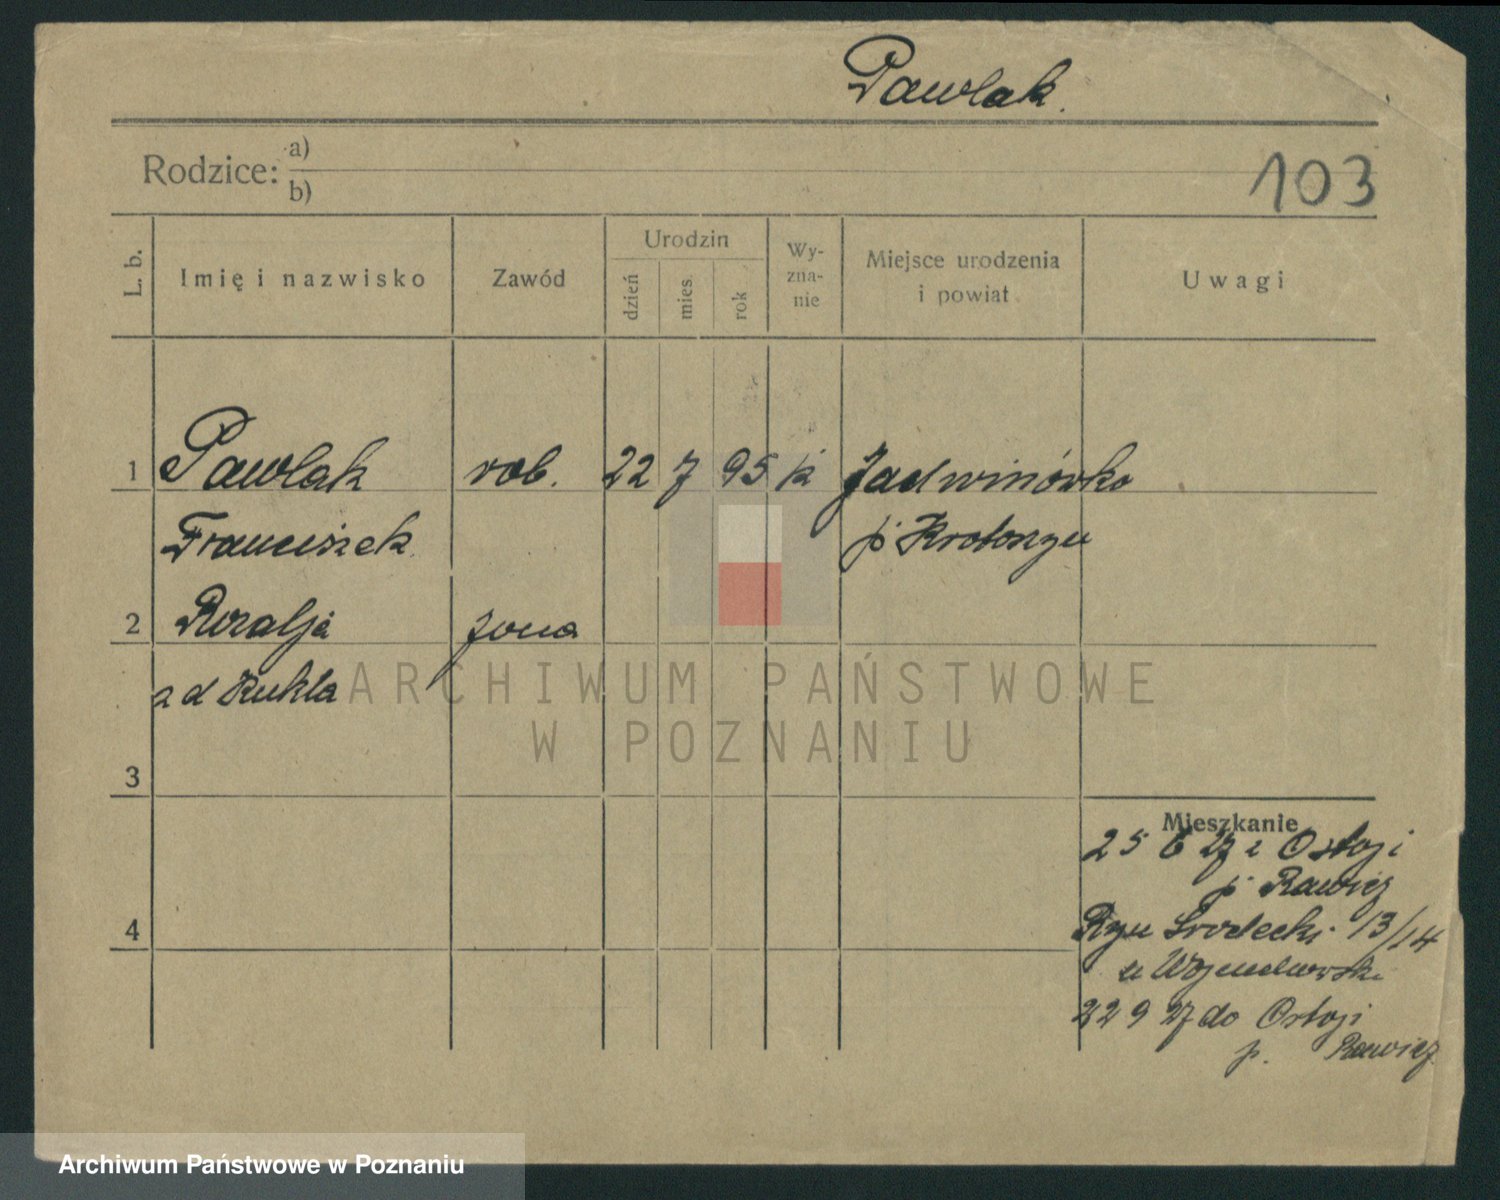 Pawlak.
Rodzice: a)
b)
103
L. b.
Imię i nazwisko
Zawód
Urodzin
dzień
mies.
rok
Wy-
zna-
nie
Miejsce urodzenia
i powiat
Uwagi
1 Pawlak rob. 22 7 95 k Jadwinówko
Franciszek p. Krotoszyn
2 Rozalja żona
z d Kukla
ARCHIWUM PAŃSTWOWE
W POZNANIU
3
Mieszkanie
25 6 27 z Ostoji
p. Rawicz
4 Ryn Srodecki 13/14
u
22 9 27 do Ostoji
p. Rawicz
Archiwum Państwowe w Poznaniu